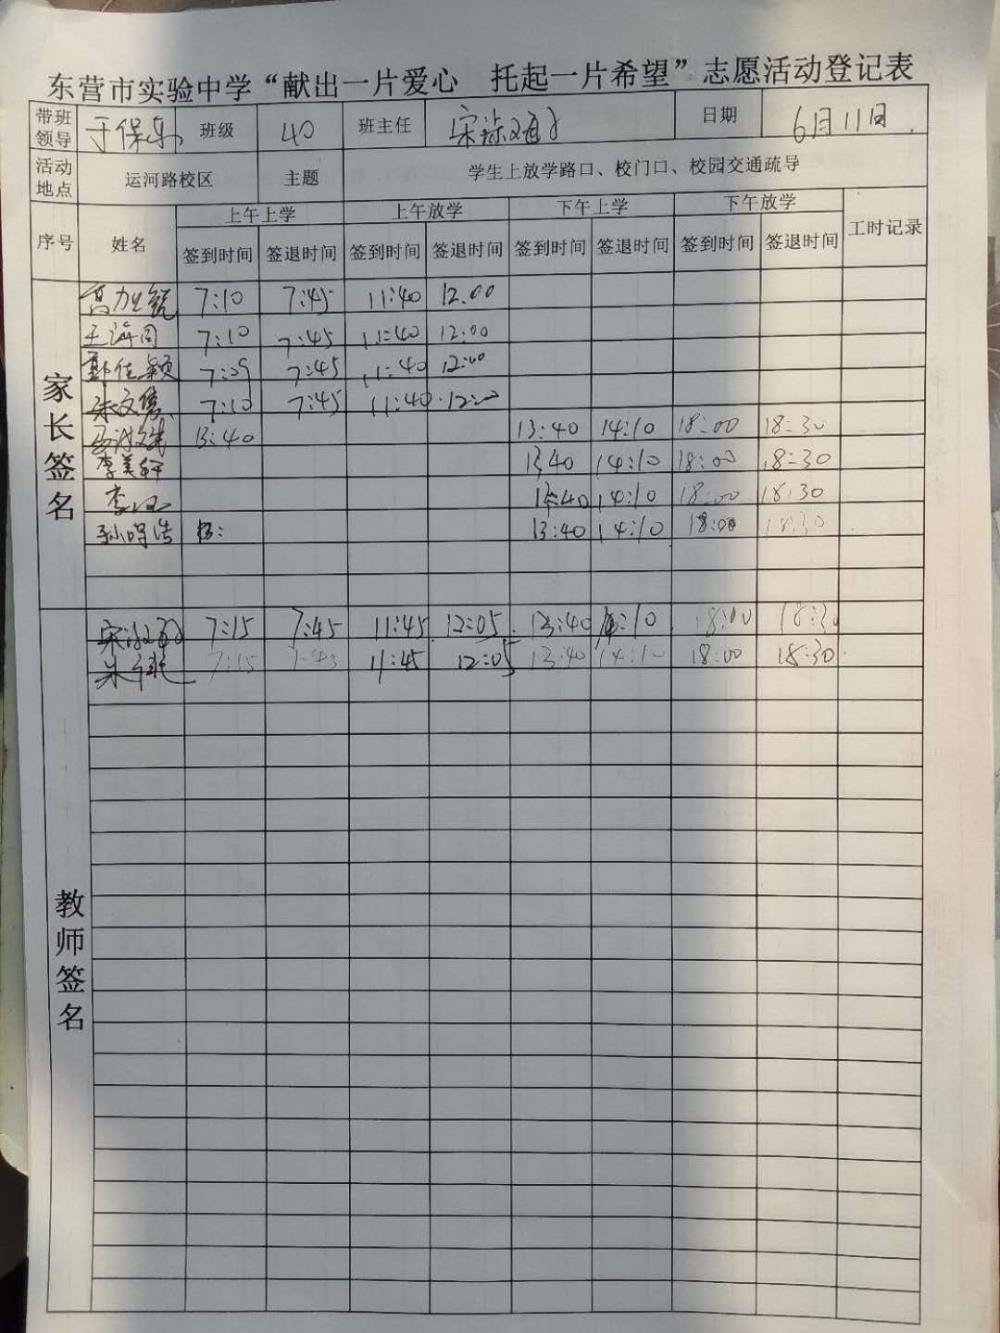 东营市实验中学“献出一片爱心 托起一片希望”志愿活动登记表
带班领导 于保东 班级 40 班主任 宋 日期 6月11日
活动地点 运河路校区 主题 学生上放学路口、校门口、校园交通疏导
序号 姓名 上午上学 上午放学 下午上学 下午放学 工时记录
签到时间 签退时间 签到时间 签退时间 签到时间 签退时间 签到时间 签退时间
家长签名
7:10 7:45 11:40 12.00
王海同 7:10 7:45 11:40 12:00
郭佳颖 7:09 7:45 11:40 12:00
7:10 7:45 11:40 12:00
13:40 13:40 14:10 18:00 18:30
李美轩 1340 14:10 18:00 18:30
李 13:40 14:10 18:00 18:30
孙鸣浩 13:40 14:10 18:00 18:30
教师签名
宋 7:15 7:45 11:45 12:05 13:40 14:10 18:00 18:30
朱 7:15 7:45 11:45 12:05 13:40 14:10 18:00 18:30